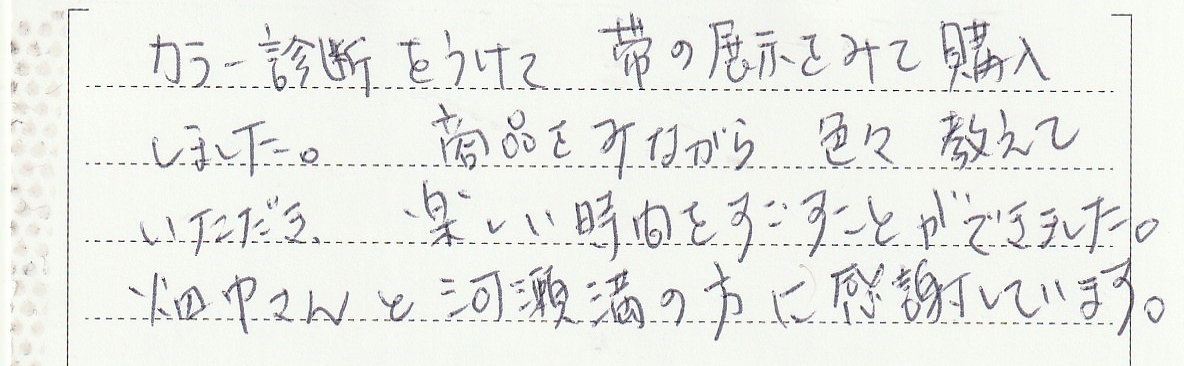 カラー診断をうけて 帯の展示をみて購入
しました。 商品をみながら 色々 教えて
いただき、 楽しい時間をすごすことができました。
畑中さんと河瀬満の方に感謝しています。